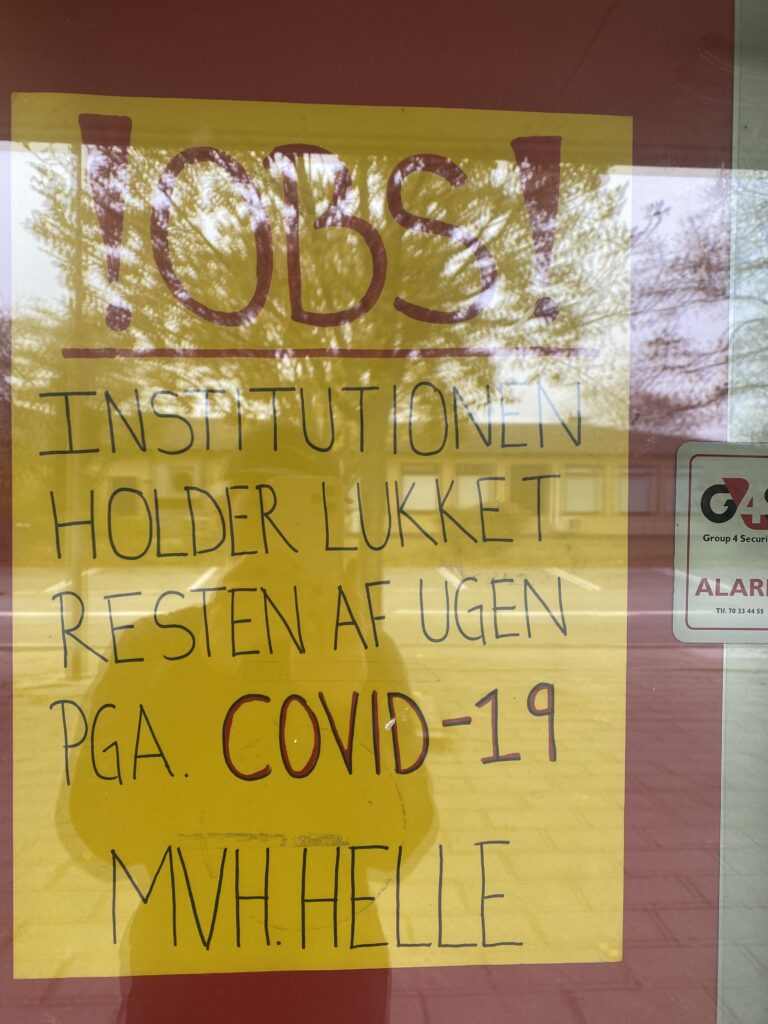 !OBS!
INSTITUTIONEN
HOLDER LUKKET
RESTEN AF UGEN
PGA. COVID-19
MVH. HELLE
G4S
Group 4 Securi
ALAR
Tlf. 70 33 44 55